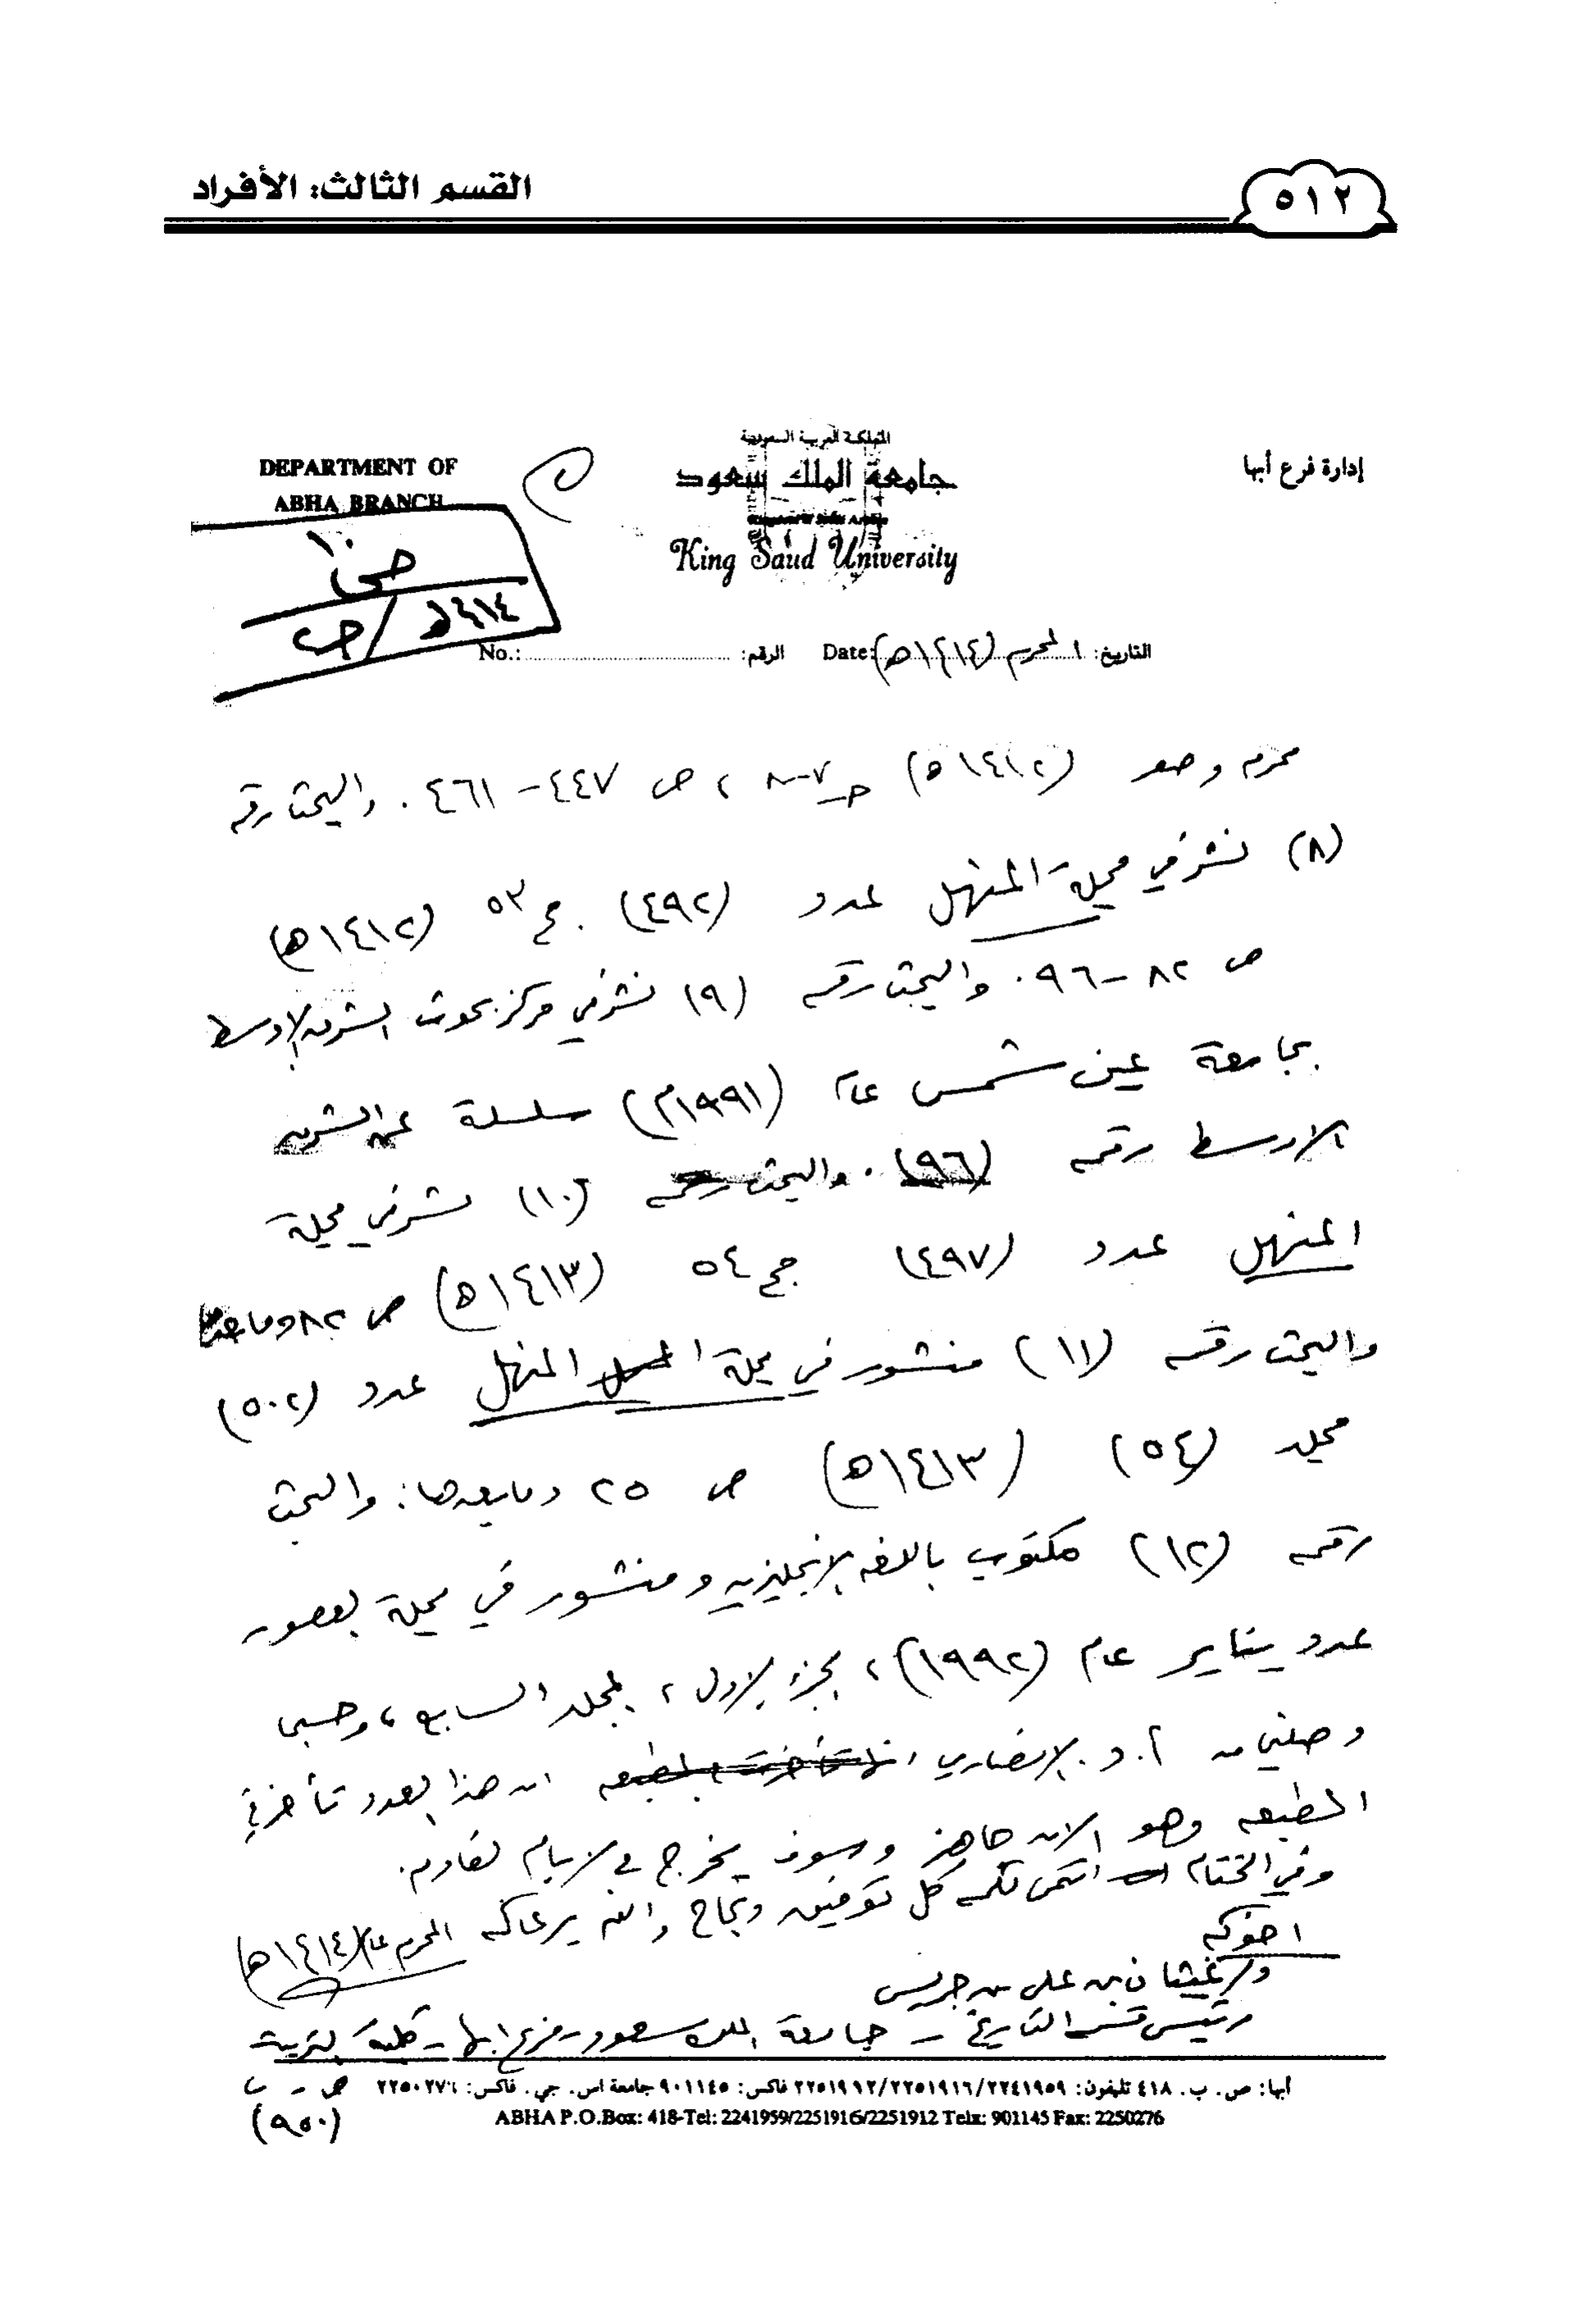 القسم الثالث: الأفراد
٥١٢
المملكة العربية السعودية
إدارة فرع أبها
جامعة الملك سعود
DEPARTMENT OF
ABHA BRANCH
King Saud University
١٤١٤هـ
التاريخ: ١ المحرم (١٤١٤هـ) Date: الرقم: No.:
محرم وصفر (١٤١٢هـ) جـ٧-٨، ص ٤٤٧-٤٦١. والبحث رقم
(٨) نشر في مجلة المنهل عدد (٤٩٢). مج ٥٣ (١٤١٢هـ)
ص ٨٢-٩٦. والبحث رقم (٩) نشر في مركز بحوث الشرق الاوسط
بجامعة عين شمس عام (١٩٩١م) سلسلة عن الشرق
الاوسط رقم (٩٦). والبحث رقم (١٠) نشر في مجلة
المنهل عدد (٤٩٧) مج ٥٤ (١٤١٣هـ) ص ٨٢ وما بعدها
والبحث رقم (١١) منشور في مجلة المنهل عدد (٥٠٢)
مجلد (٥٤) (١٤١٣هـ) ص ٢٥ وما بعدها: والبحث
رقم (١٢) مكتوب باللغه الانجليزيه ومنشور في مجلة العصور
عدد يناير عام (١٩٩٢)، الجزء الاول، المجلد السابع، وحسبما
وصلني من أ.د. الانصاري ان هذا العدد تأخر في
المطبعه وهو الان جاهز وسوف يخرج في الايام القادمه.
وفي الختام اتمنى لكم كل توفيق ونجاح والله يرعاكم المحرم عام (١٤١٤هـ)
اخوكم
د/ غيثان بن علي بن جريس
رئيس قسم التاريخ - جامعة الملك سعود - فرع ابها - كلية التربية
أبها: ص. ب. ٤١٨ تليفون: ٢٢٤١٩٥٩/٢٢٥١٩١٦/٢٢٥١٩١٢ فاكس: ٩٠١١٤٥ جامعة اس. جي. فاكس: ٢٢٥٠٢٧٦
ص - ب
(٩٥٠)
ABHA P.O.Box: 418-Tel: 2241959/2251916/2251912 Telx: 901145 Fax: 2250276